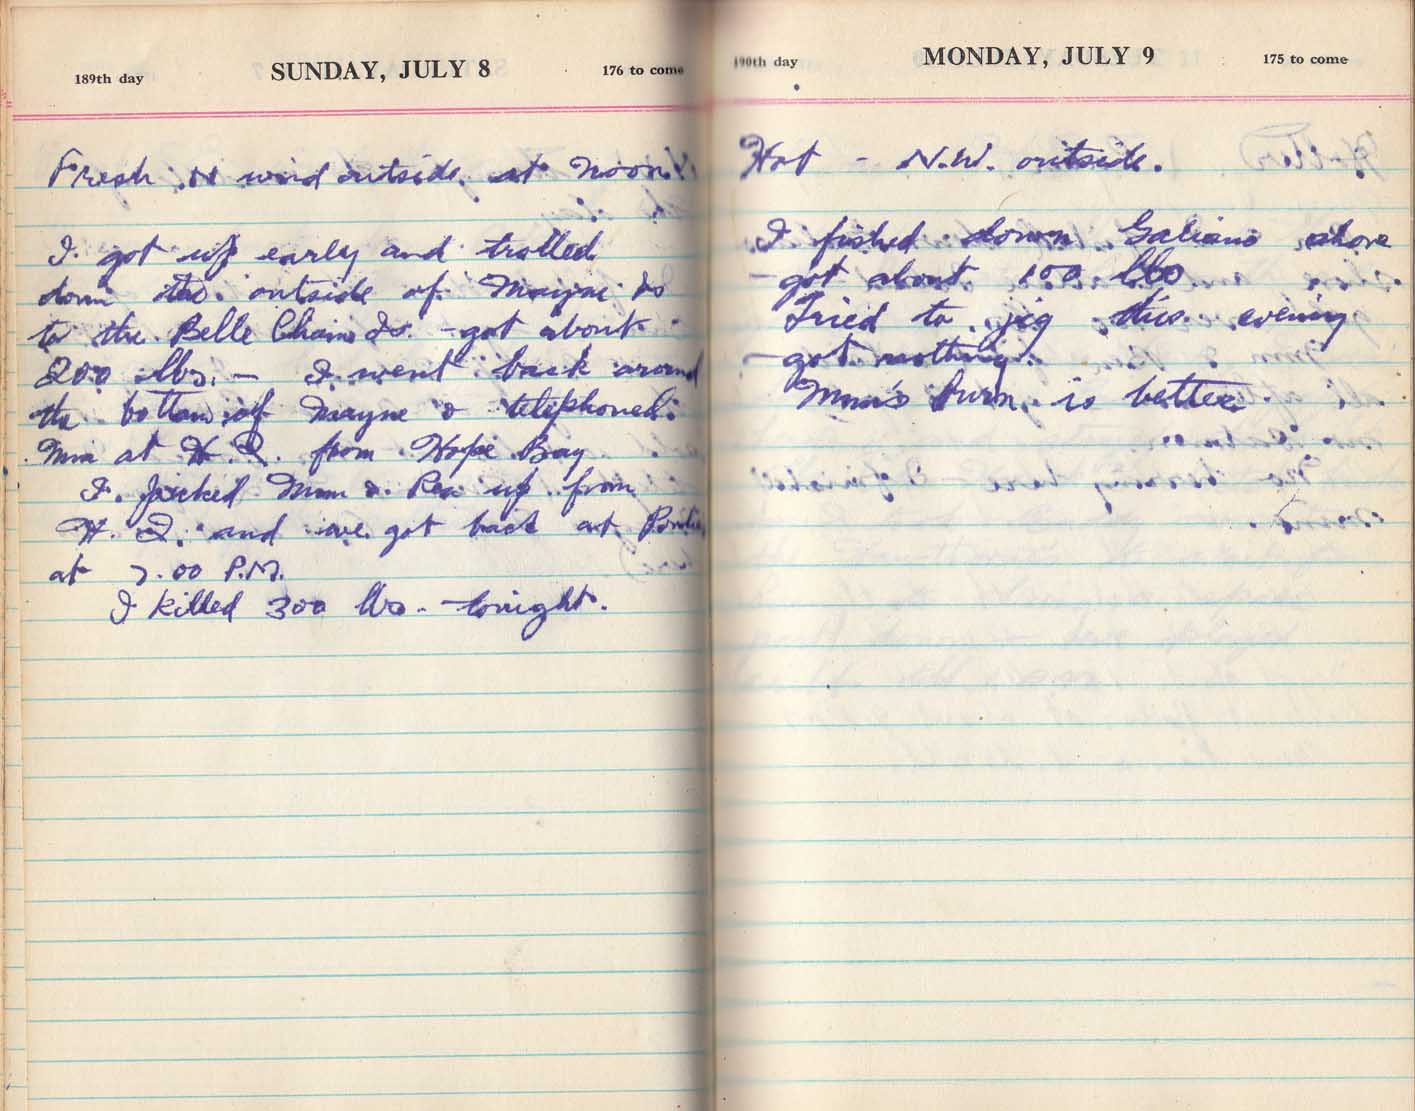 189th day SUNDAY, JULY 8 176 to come
Fresh N wind outside at noon.
I got up early and trolled
down the outside of Mayne Is
to the Belle Chain Is. - got about
200 lbs. - I went back around
the bottom of Mayne & telephoned
Mim at H.I. from Hope Bay
I. Jacked Mim & Rex up from
H. I. and we got back at
at 7.00 P.M.
I killed 300 lbs. tonight.
190th day MONDAY, JULY 9 175 to come
Hot - N.W. outside.
I fished down Galiano shore
- got about 100 lbs
Tried to jig this evening
- got nothing.
Mim's burn is better